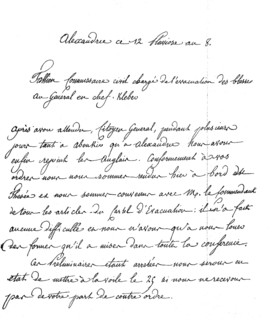 Alexandrie ce 12 Pluviose an 8.
Tallien Commissaire civil chargé de l'évacuation des blessés
au Général en chef Kleber
Après avoir attendu, Citoyen Général, pendant plusieurs
jours tant a aboukir qu'a Alexandrie nous avons
enfin rejoint les Anglais. Conformement à vos
ordres nous nous sommes rendus hier à bord du
Thésée et nous sommes convenus avec Mr. le Commandant
de tous les articles du Cartel d'Evacuation. il n'a fait
aucune difficulté et nous n'avons qu'a nous louer
des formes qu'il a mises dans toute la conference.
Ces Préliminaires étant arrêtés nous serons en
état de mettre à la voile le 25 si nous ne recevons
pas de votre part de contre ordre.